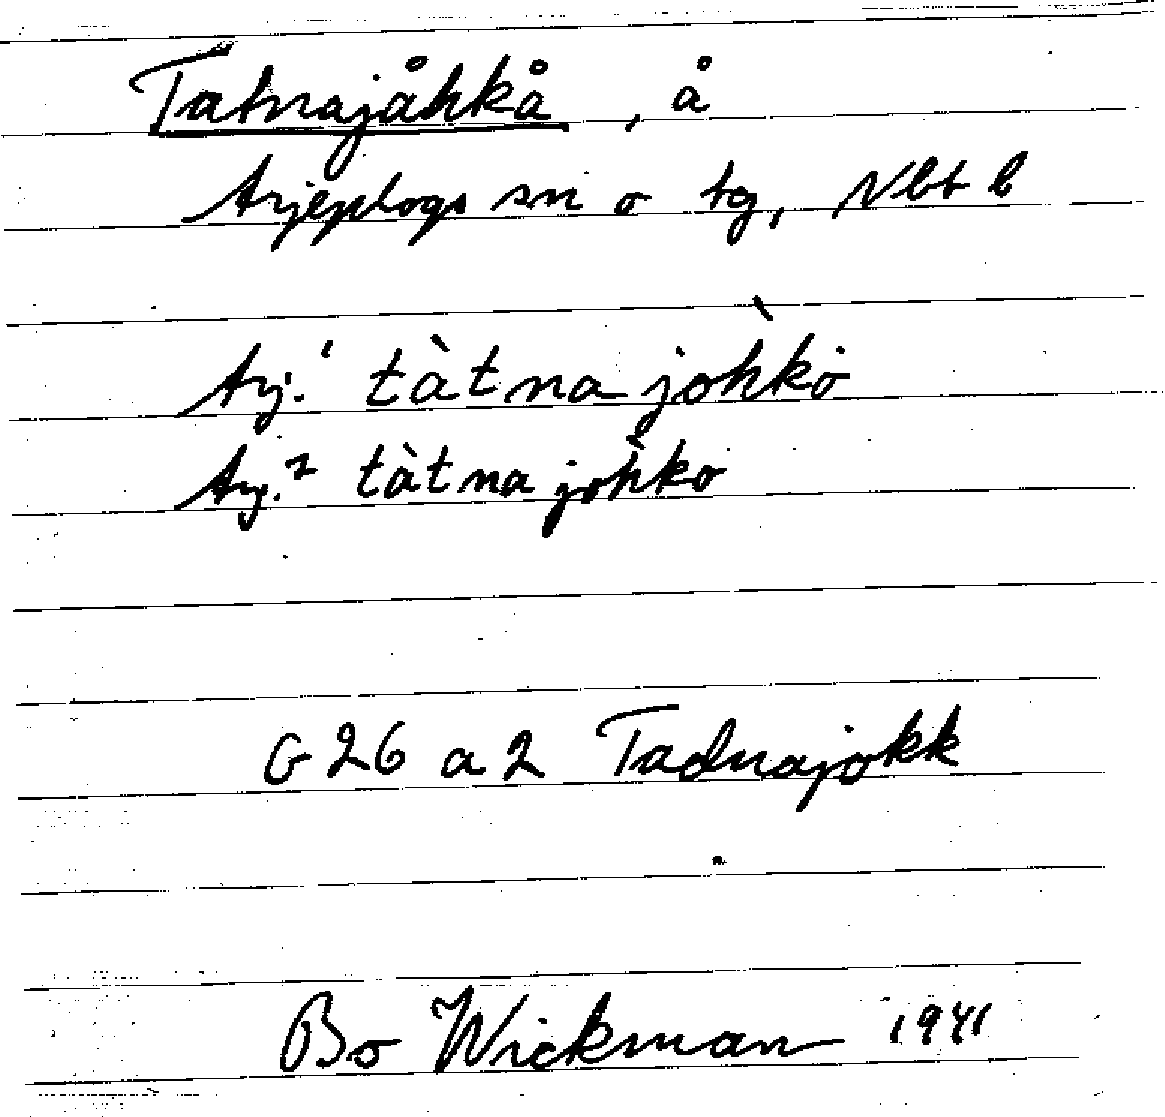 Tatnajåhkå, å
Arjeplogs sn o tg, Nbt l
Arj.¹ tàtnajoh̀kȯ
Arj.² tàtnajoh̀ko
G 26 a 2 Tadnajokk
Bo Wickman 1941